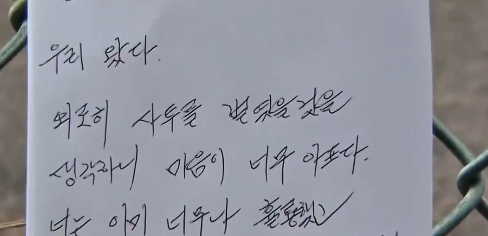 우리 왔다.
외로히 사투를 벌였을것을
생각하니 마음이 너무 아프다.
너는 이미 너무나 훌륭했고